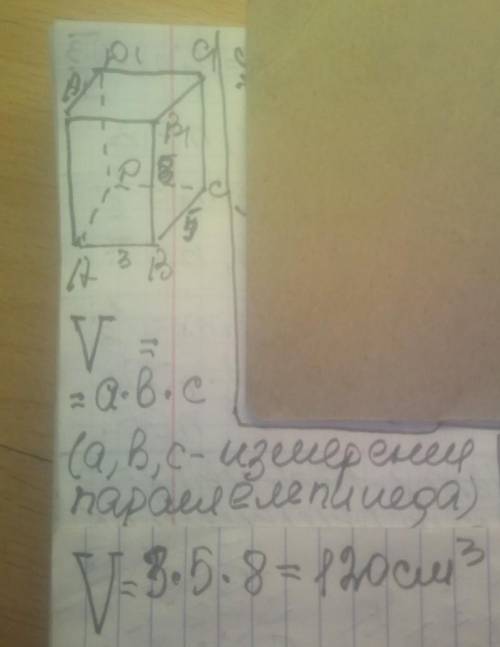 D1 C1
A1
B1
D 8 C
5
A 3 B
V =
= a·b·c
(a, b, c - измерения
параллелепипеда)
V = 3·5·8 = 120 см³